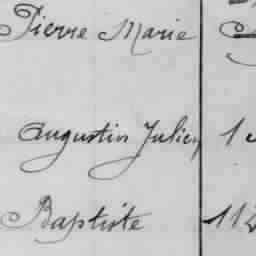 Pierre Marie
Augustin Julien 1
Baptiste 112